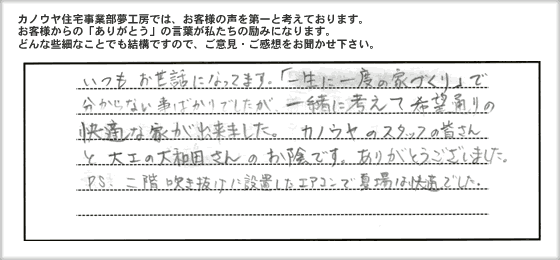 カノウヤ住宅事業部夢工房では、お客様の声を第一と考えております。
お客様からの「ありがとう」の言葉が私たちの励みになります。
どんな些細なことでも結構ですので、ご意見・ご感想をお聞かせ下さい。
いつもお世話になってます。「一生に一度の家づくり」で
分からない事ばかりでしたが、一緒に考えて希望通りの
快適な家が出来ました。カノウヤのスタッフの皆さん
と大工の大和田さんのお陰です。ありがとうございました。
PS: 二階吹き抜けに設置したエアコンで夏場は快適でした。